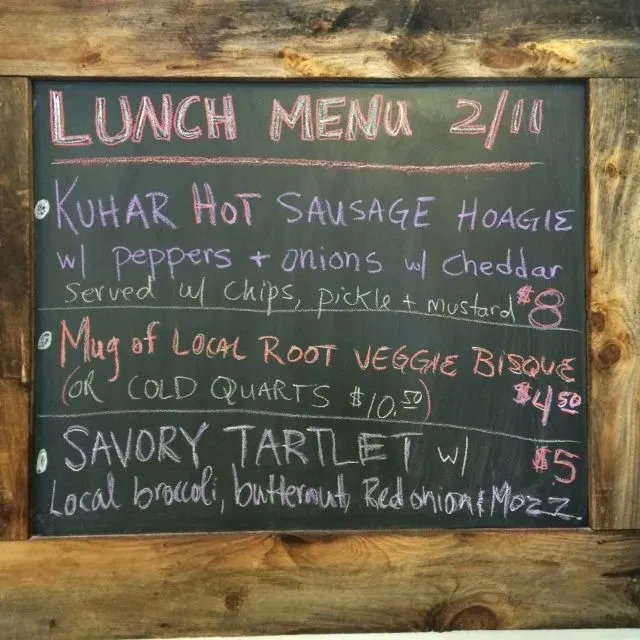 LUNCH MENU 2/11
KUHAR HOT SAUSAGE HOAGIE
w/ peppers + onions w/ cheddar
Served w/ chips, pickle + mustard $8
Mug of LOCAL ROOT VEGGIE BISQUE
(OR COLD QUARTS $10.50) $4.50
SAVORY TARTLET w/ $5
Local broccoli, butternut, Red onion & Mozz